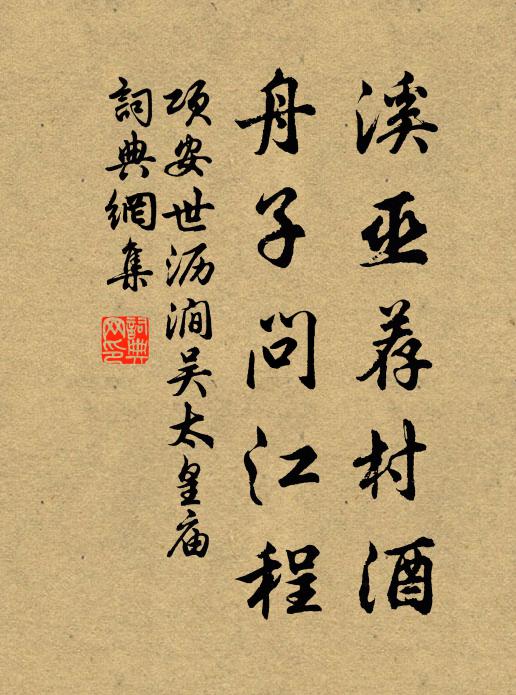 溪巫荐村酒
舟子问江程
项安世沥涧吴太皇庙
詞典網集
詞典網印